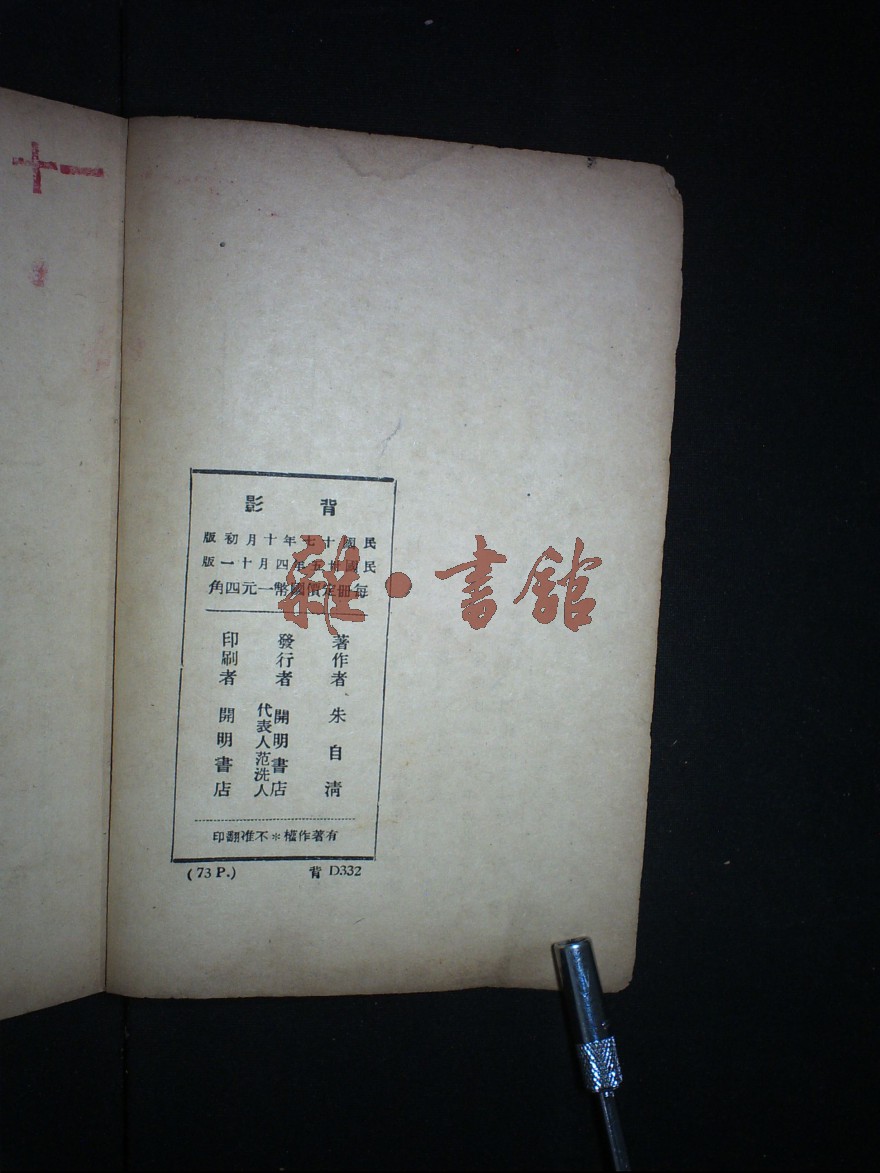 十一
背影
民國十七年十月初版
民國卅五年四月十一版
每冊定價國幣一元四角
著作者 朱自淸
發行者 開明書店
代表人范洗人
印刷者 開明書店
有著作權＊不准翻印
(73 P.) 背 D332
雜·書館